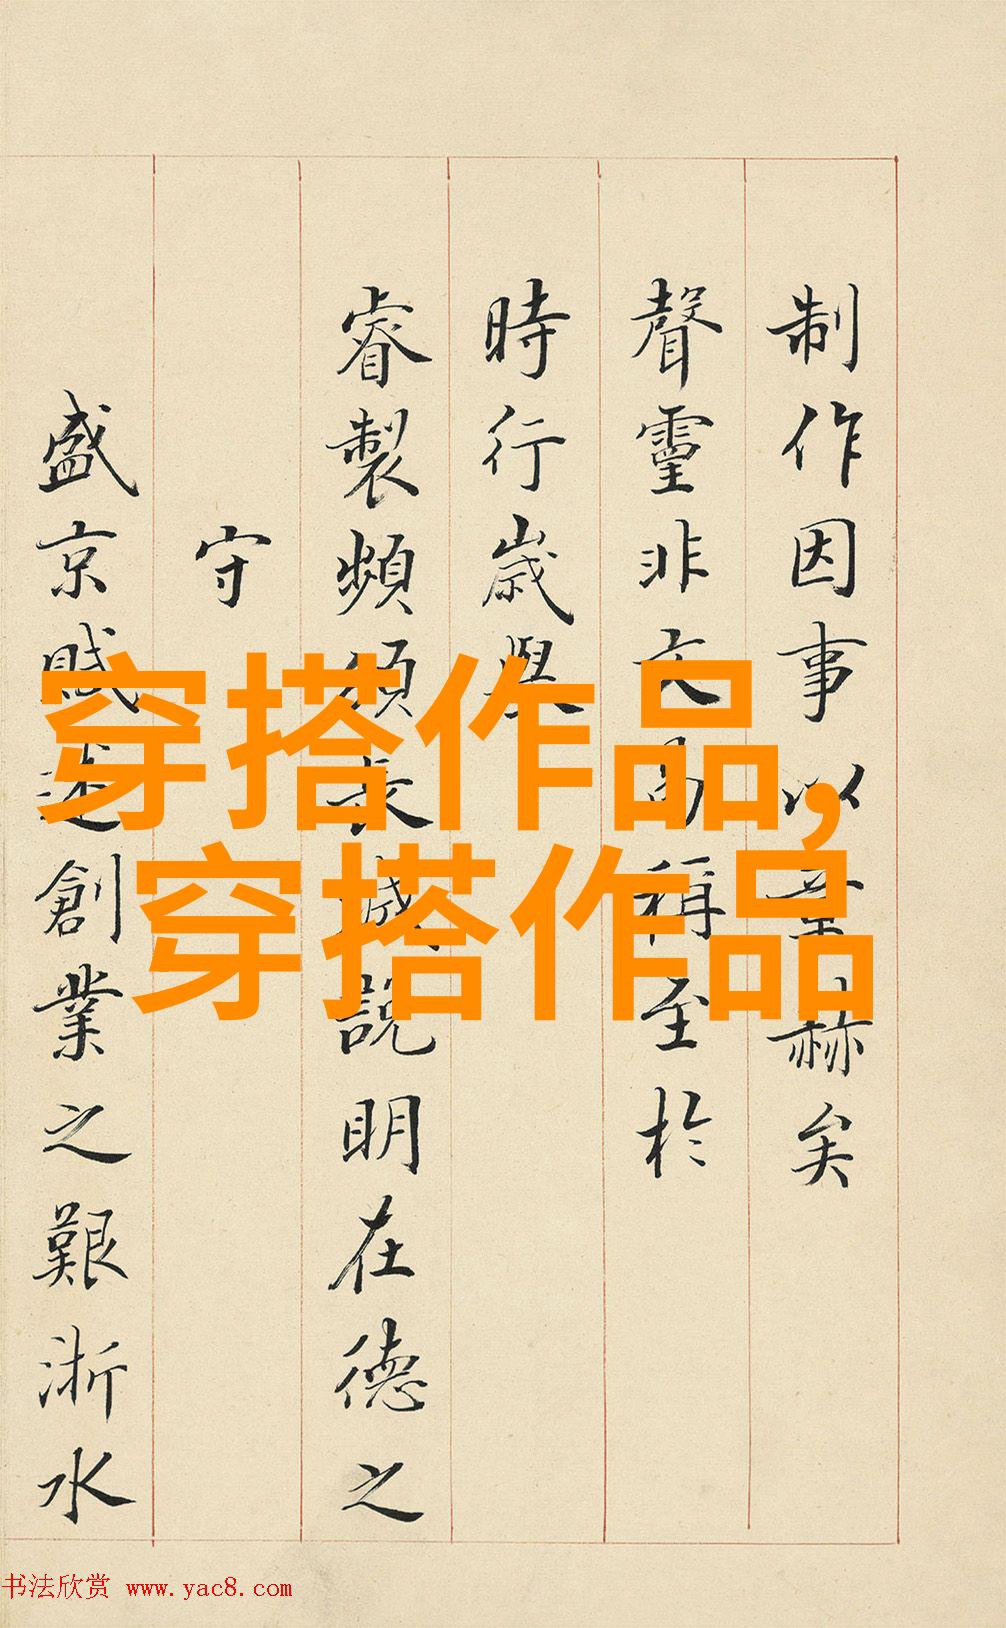 制作因事以赫矣
聲靈非文稱至於
時行歲與
睿製頻頒長城說明在德之
守
盛京賦述創業之艱浙水
穿搭作品,
穿搭作品
书法欣赏 www.yac8.com